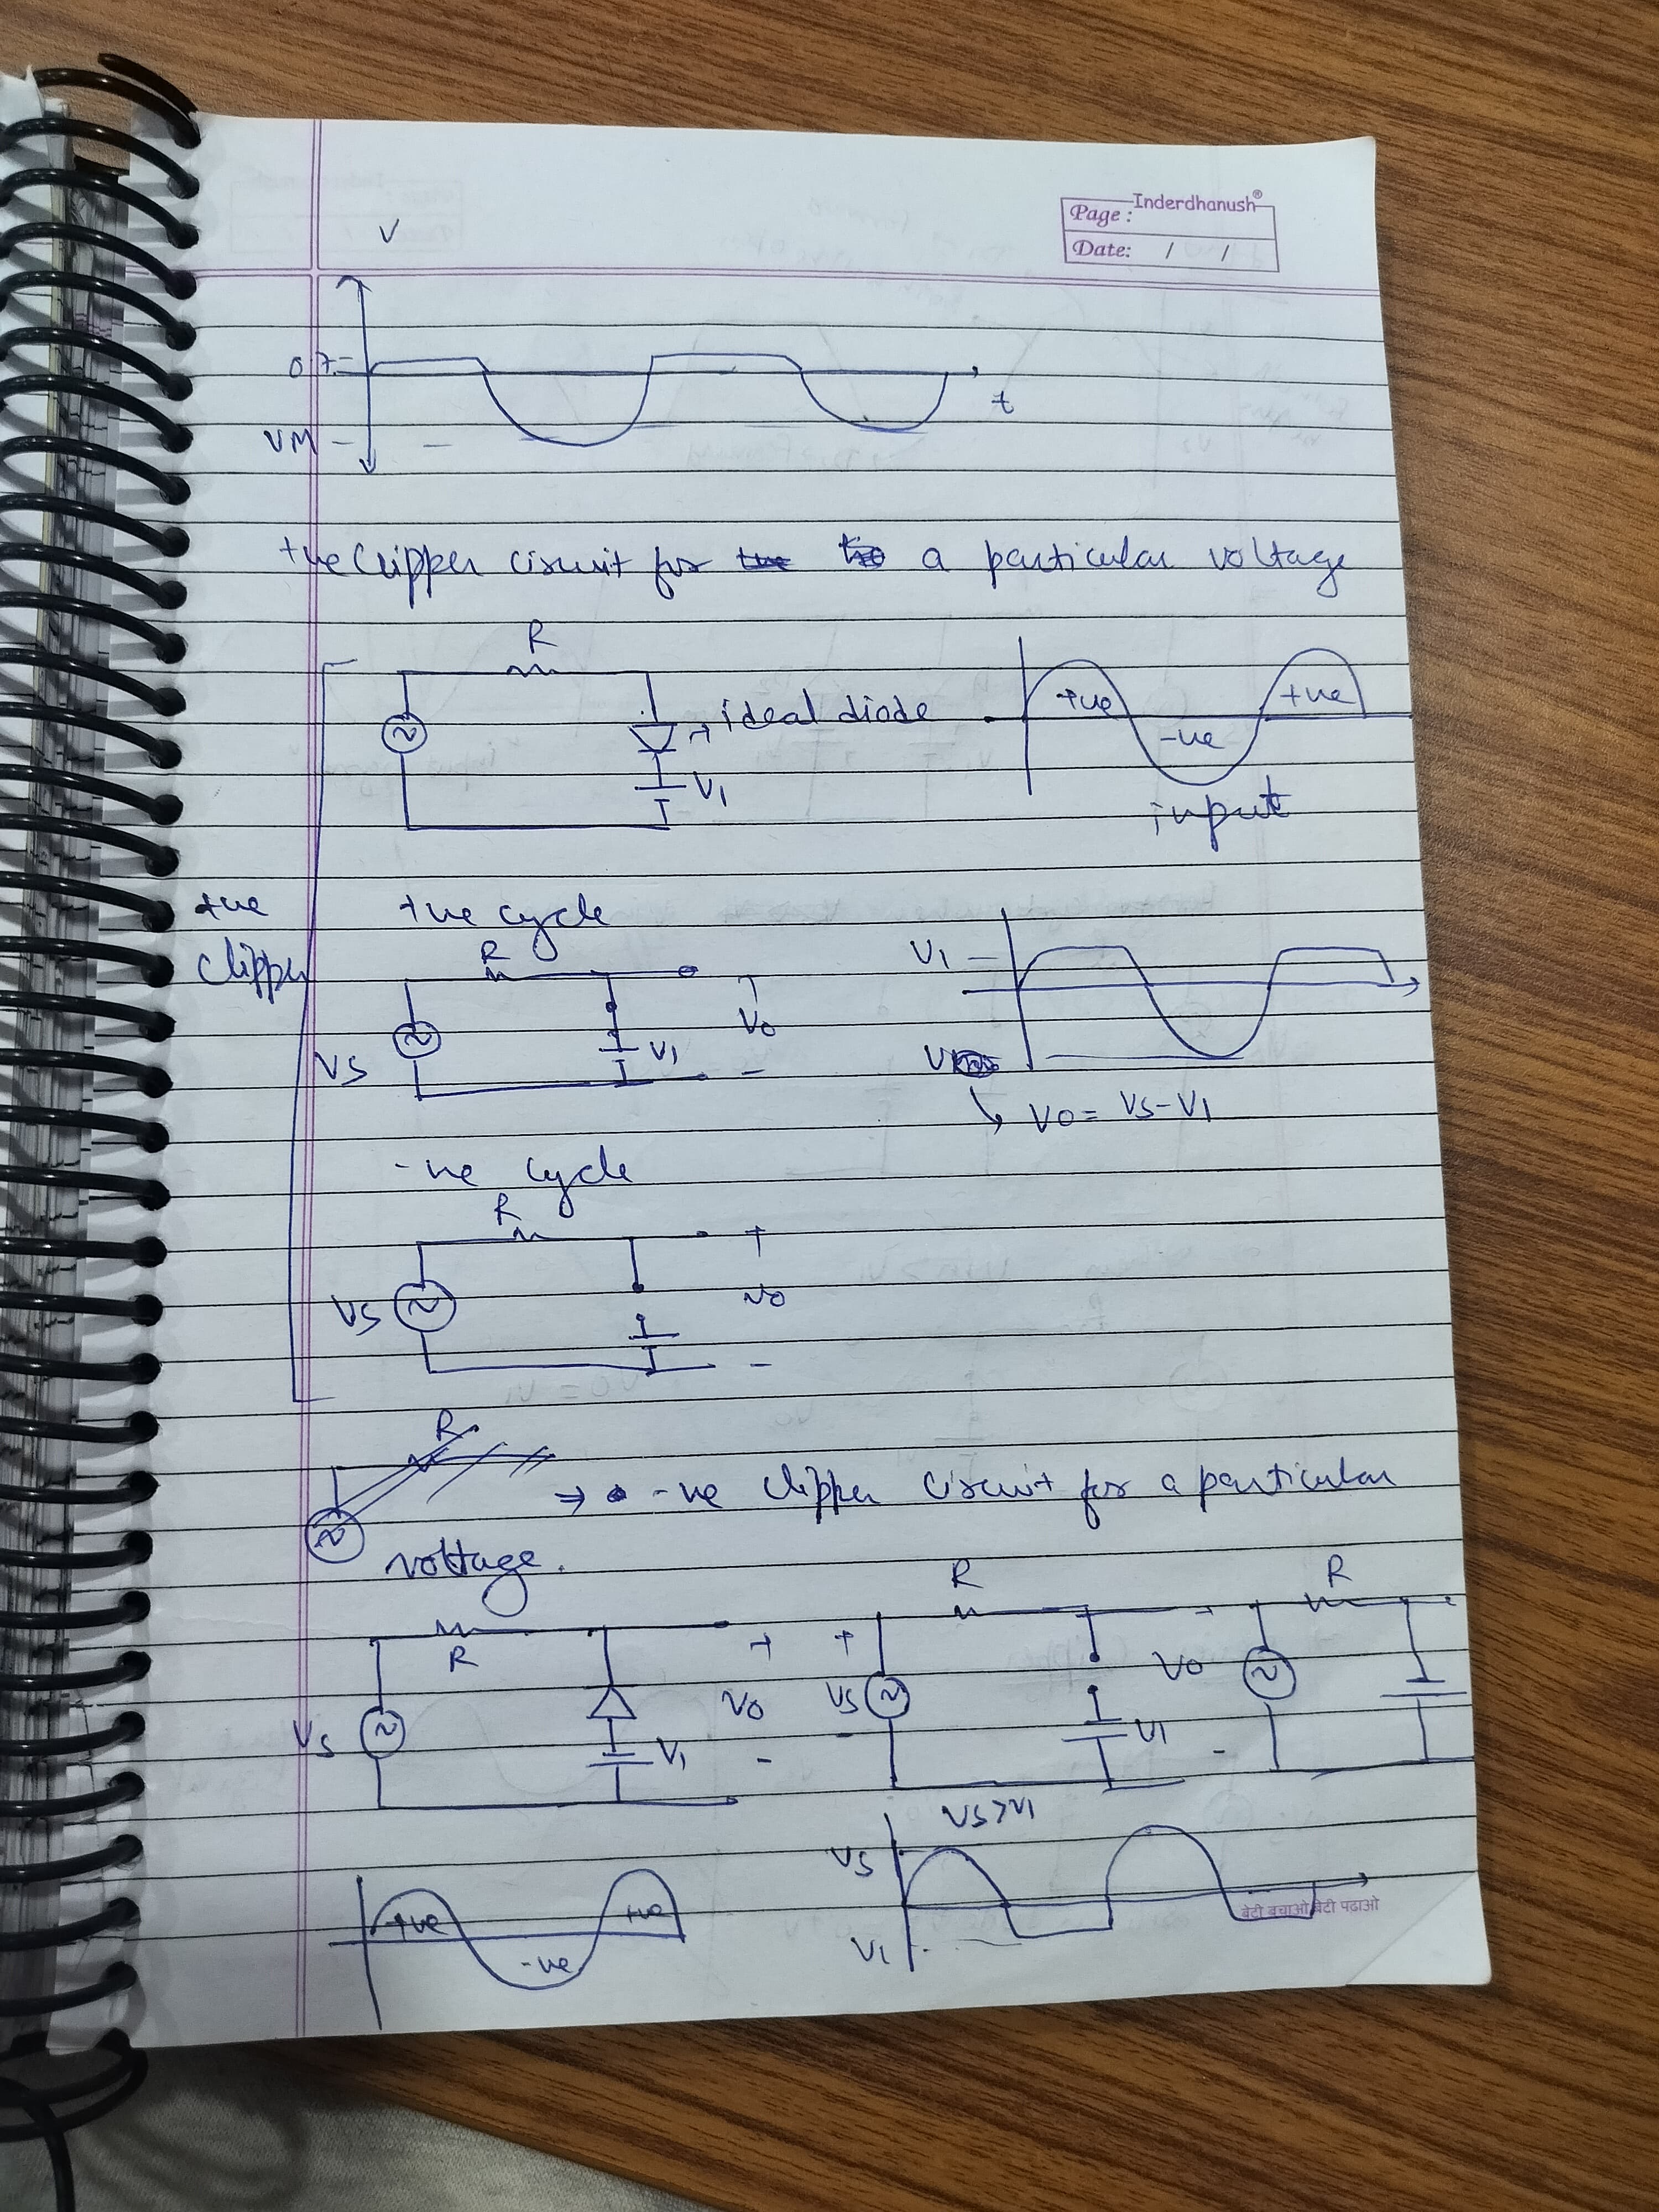 Inderdhanush®
Page:
Date: / /
V
0.7
VM
t
+ve Clipper circuit for a particular voltage
R
ideal diode
V1
+ve
-ve
+ve
input
+ve
Clipper
+ve cycle
R
VS
V1
V0
-
V1
V0 = VS-V1
-ve cycle
R
VS
+
V0
-
R
→ -ve Clipper Circuit for a particular
voltage.
R
VS
V1
+
V0
-
R
+
VS
-
V1
+
V0
-
R
VS>V1
+ve
-ve
+ve
VS
V1
बेटी बचाओ बेटी पढाओ